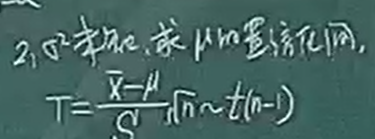 2, σ²未知,求μ的置信区间,
T = \frac{\overline{X}-μ}{S}\sqrt{n} ~ t(n-1)